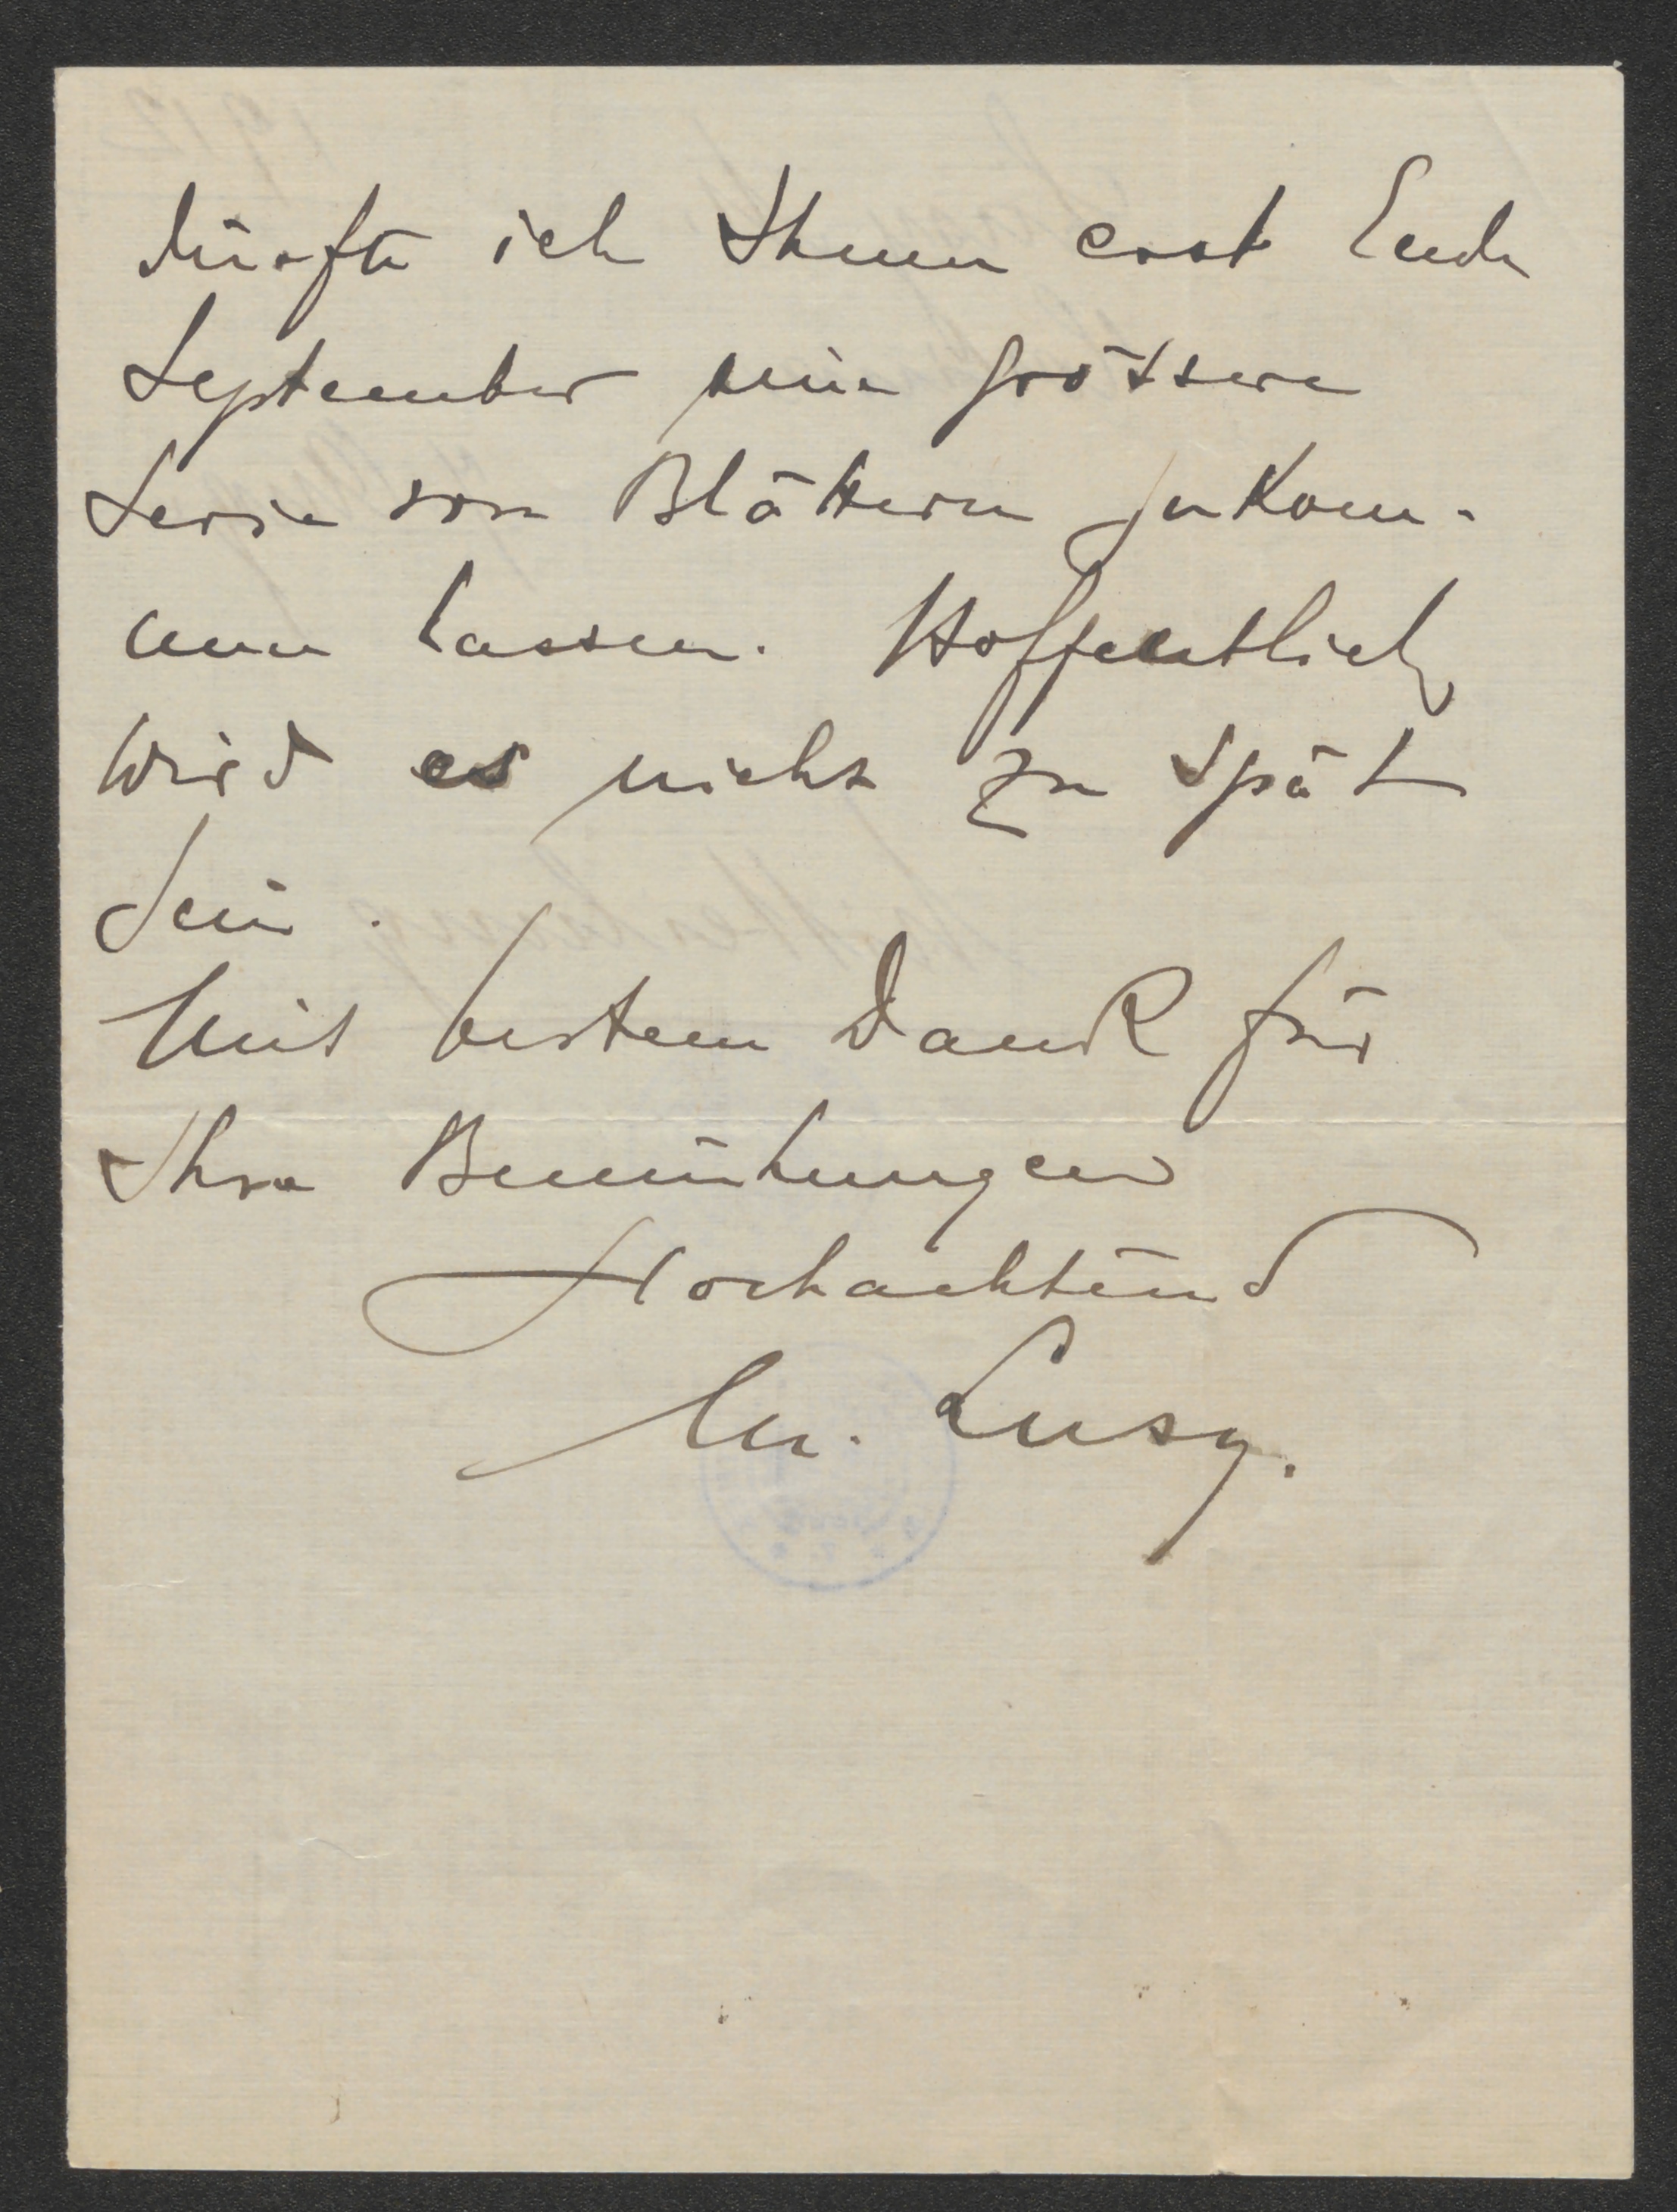 dürfte ich Ihnen erst Ende
September eine grössere
Serie von Blättern zukom-
men lassen. Hoffentlich
wird es nicht zu spät
sein.
Mit bestem Dank für
Ihre Bemühungen
Hochachtend
M. Lusy.